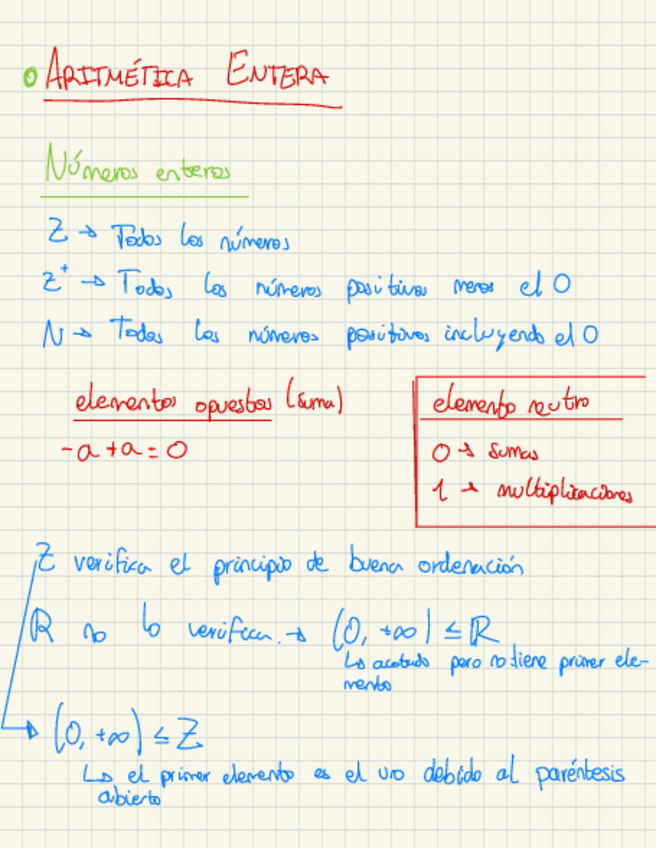 ARITMÉTICA ENTERA
Números enteros
Z → Todos los números
Z⁺ → Todos los números positivos menos el 0
N → Todos los números positivos incluyendo el 0
elementos opuestos (suma)
-a + a = 0
elemento neutro
0 → sumas
1 → multiplicaciones
Z verifica el principio de buena ordenación
R no lo verifica. → (0, +∞) ≤ R
↳ acotado pero no tiene primer ele-
mento
(0, +∞) ≤ Z
↳ el primer elemento es el uno debido al paréntesis
abierto